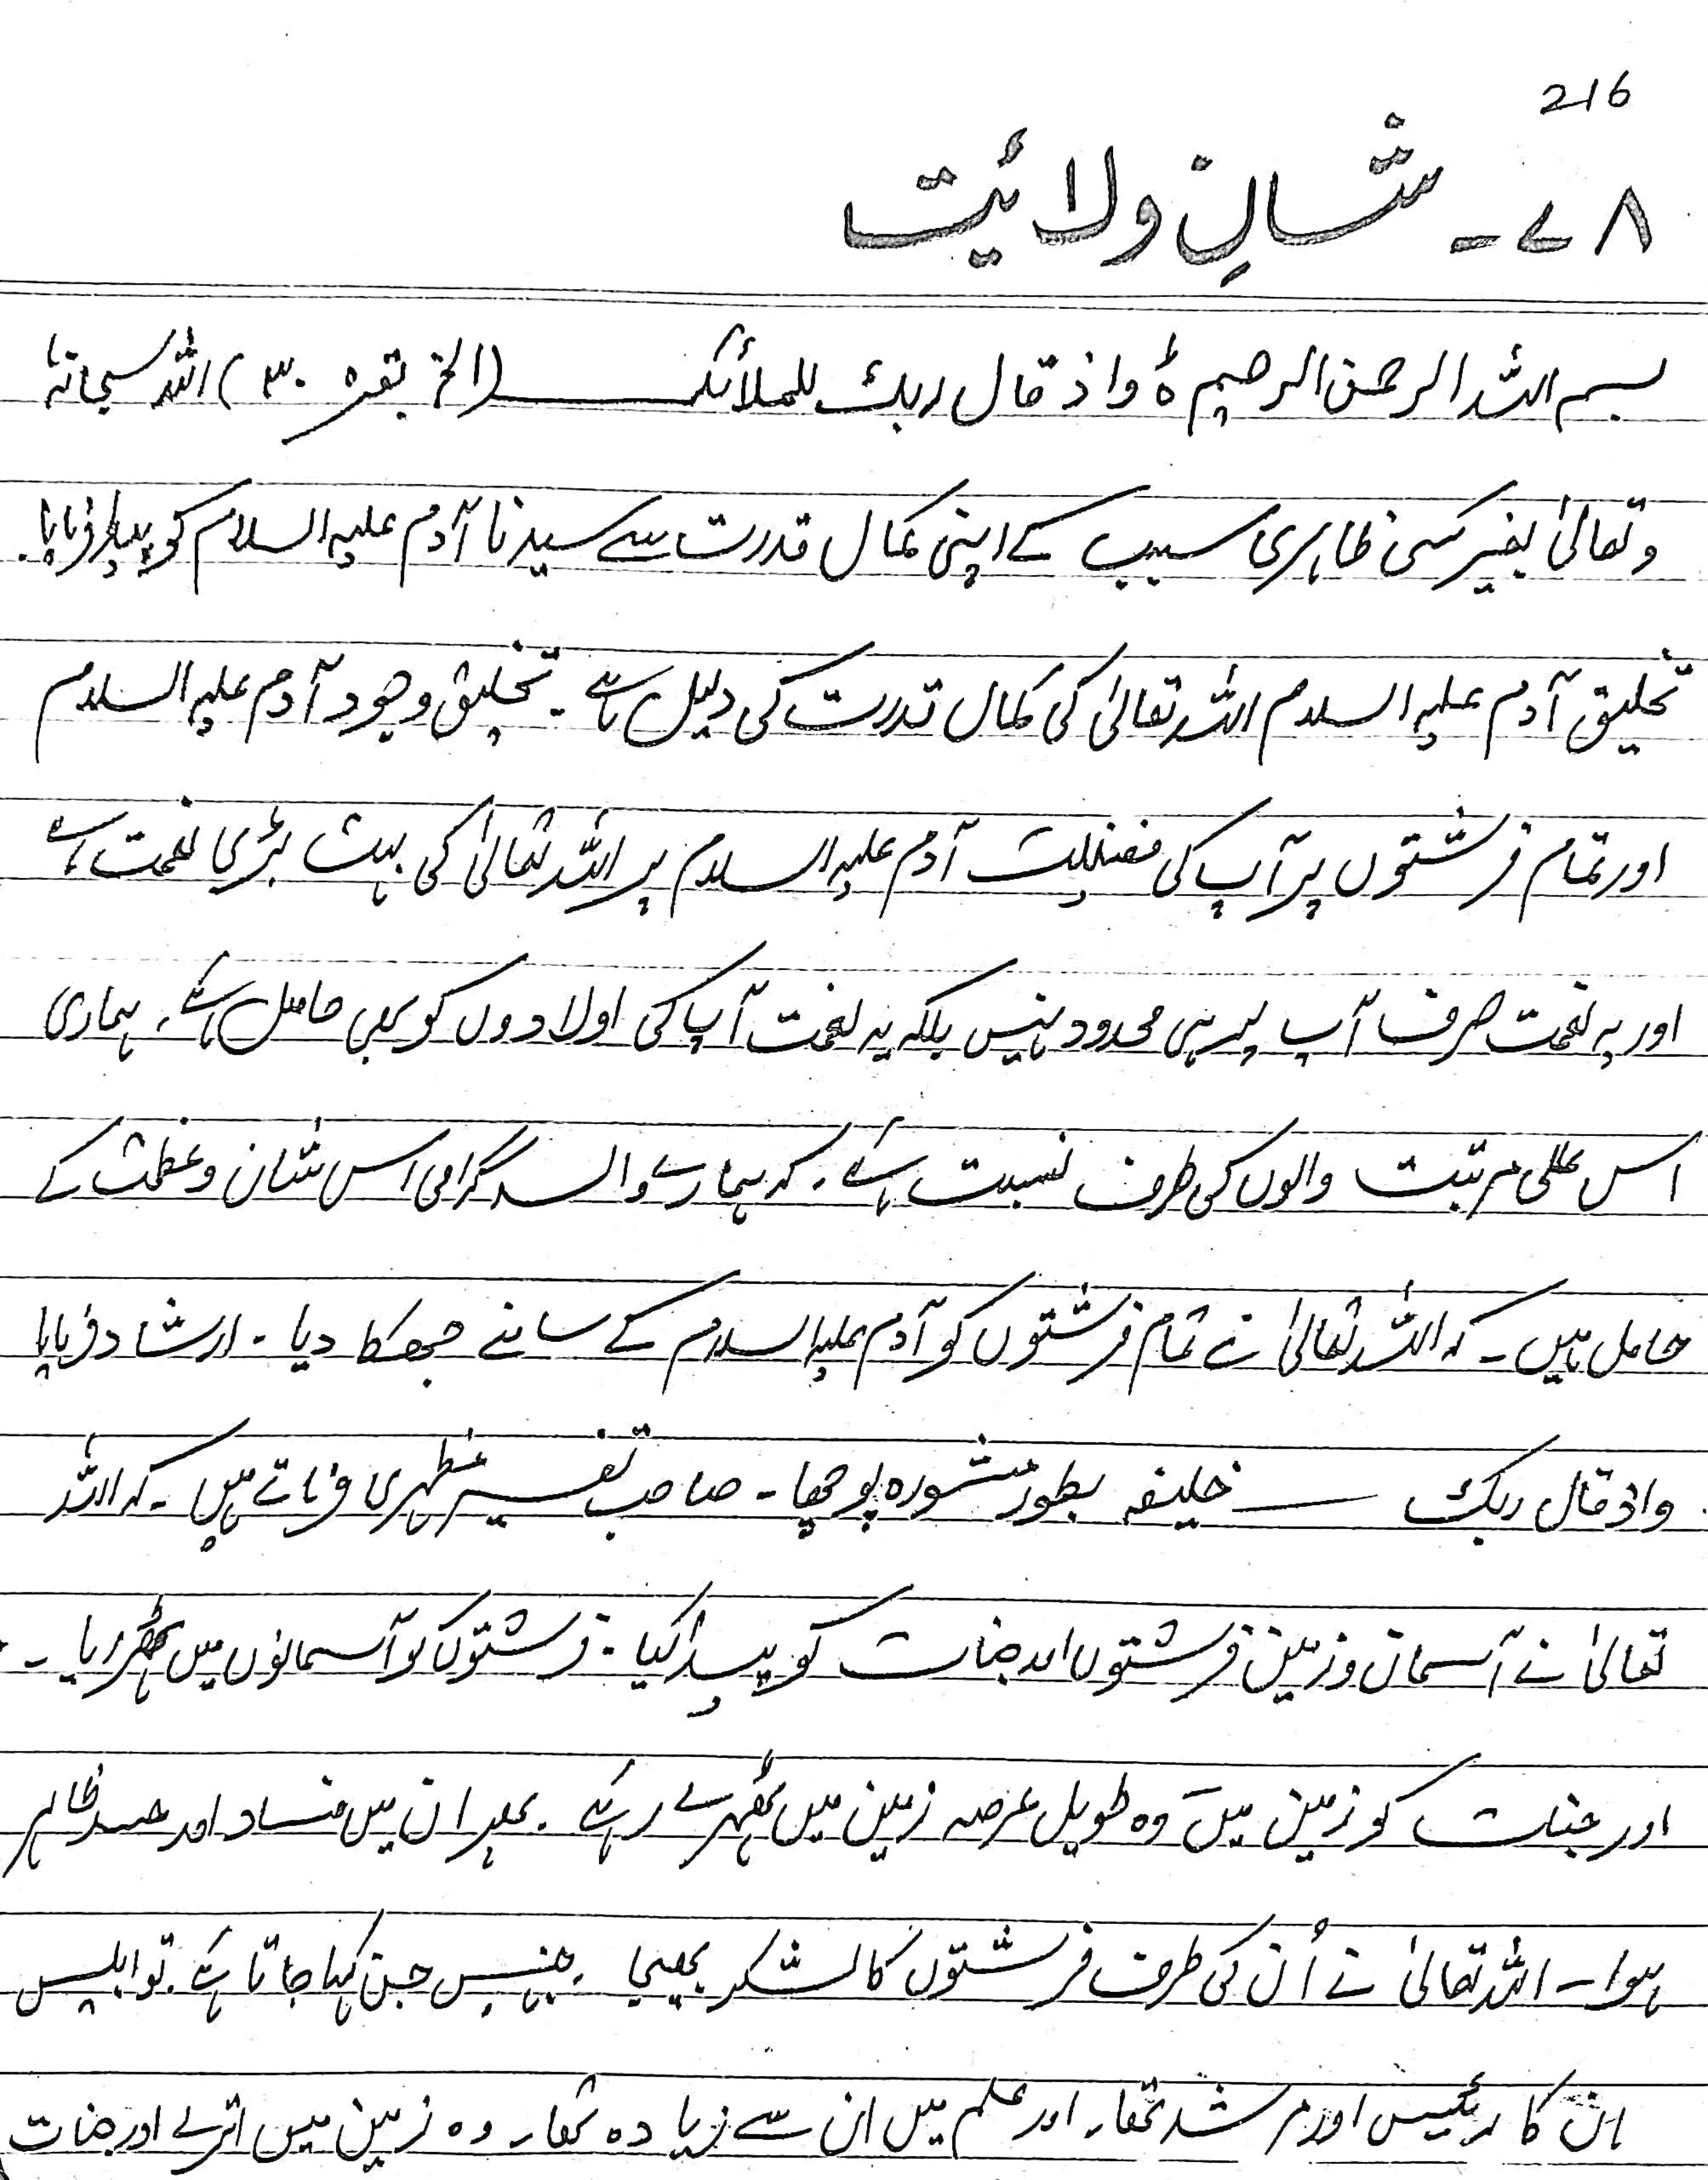 216
۷۸ - شانِ ولائیت
بسم اللہ الرحمٰن الرحیم ہ واذ قال ربك للملائکۃ ــــــــــ (الخ بقرہ ۳۰) اللہ سبحانہٗ
وتعالیٰ بغیر کسی ظاہری سبب کے اپنی کمال قدرت سے سیدنا آدم علیہ السلام کو پیدا فرمایا۔
تخلیق آدم علیہ السلام اللہ تعالیٰ کی کمال قدرت کی دلیل ہے۔ تخلیق وجود آدم علیہ السلام
اور تمام فرشتوں پر آپ کی فضیلت آدم علیہ السلام پر اللہ تعالیٰ کی بہت بڑی نعمت ہے
اور یہ نعمت صرف آپ پر ہی محدود نہیں بلکہ یہ نعمت آپ کی اولادوں کو بھی حاصل ہے۔ ہماری
اس علی مرتبت والوں کی طرف نسبت ہے۔ کہ ہمارے والد گرامی اس شان و عظمت کے
حامل ہیں۔ کہ اللہ تعالیٰ نے تمام فرشتوں کو آدم علیہ السلام کے سامنے جھکا دیا۔ ارشاد فرمایا
واذ قال ربک ــــــ خلیفہ بطور مشورہ پوچھا۔ صاحب تفسیر مظہری فرماتے ہیں۔ کہ اللہ
تعالیٰ نے آسمان و زمین فرشتوں اور جنات کو پیدا کیا۔ فرشتوں کو آسمانوں میں ٹھہرایا۔
اور جنات کو زمین میں وہ طویل عرصہ زمین میں ٹھہرے رہے۔ پھر ان میں فساد اور حسد ظاہر
ہوا۔ اللہ تعالیٰ نے اُن کی طرف فرشتوں کا لشکر بھیجا۔ جنہیں جن کہا جاتا ہے۔ تو ابلیس
ان کا رئیس اور مرشد تھا۔ اور علم میں ان سے زیادہ تھا۔ وہ زمین میں اترے اور جنات